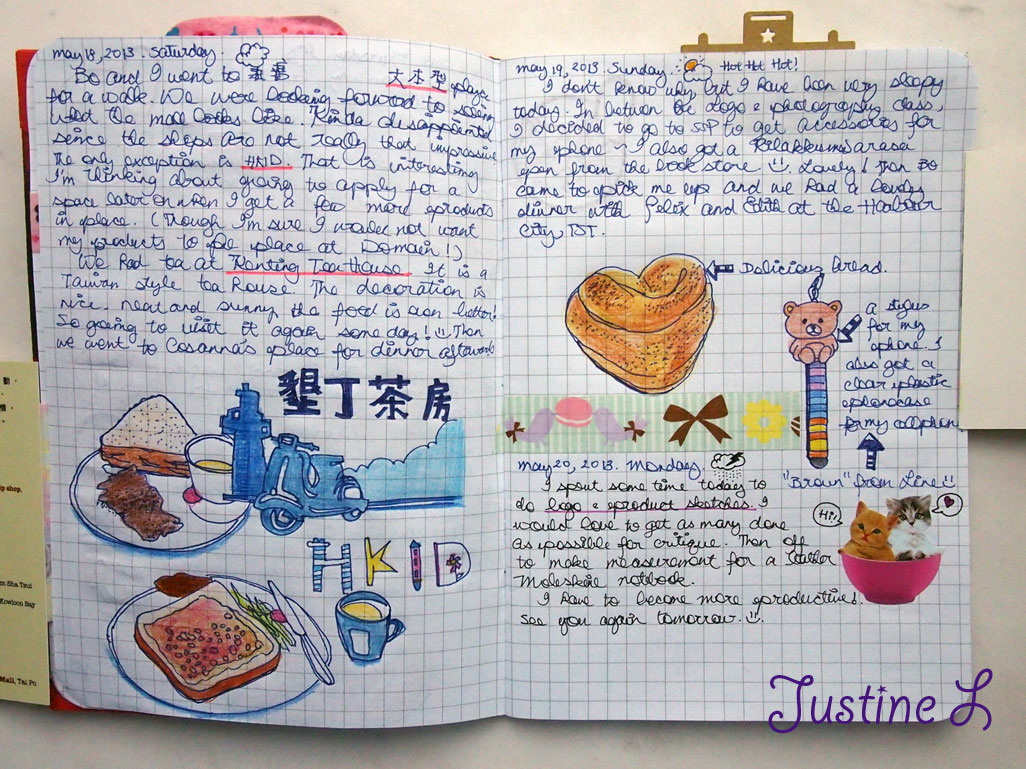 May 18, 2013. Saturday.
Bo and I went to 大本型 place
for a walk. We were looking forward to seeing
what the mall looks like. Kinda disappointed
since the shops are not really that impressive
The only exception is HKID. That is interesting
I'm thinking about going to apply for a
space later on when I get a few more products
in place. (Though I'm sure I would not want
my products to be place at Domain!)
We had tea at Kenting Tea House. It is a
Taiwan style tea house. The decoration is
nice. neat and sunny the food is even better!
So going to visit it again some day! Then
we went to Cosanna's place for dinner afterwards
墾丁茶房
HKID
May 19, 2013. Sunday. Hot Hot Hot!
I don't know why but I have been very sleepy
today. In between the logo & photography class,
I decided to go to SSP to get accessories for
my iphone ~ I also got a Rilakkuma
pen from the book store. Lovely! Then Bo
came to pick me up and we had a lovely
dinner with Felix and Edith at the Harbour
City, TST.
Delicious bread.
A stylus
for my
iphone. I
also got a
clear plastic
iphonecase
for my cellphone
"Brown" from Line
May 20, 2013. Monday.
I spent some time today to
do logo & product sketches. I
would love to get as many done
as possible for critique. Then off
to make measurement for a leather
Moleskine notbook.
I have to become more productive!
See you again tomorrow.
Hi!
動．
情．
p shop,
m Sha Tsui
Kowloon Bay
Mall, Tai Po
Justine L